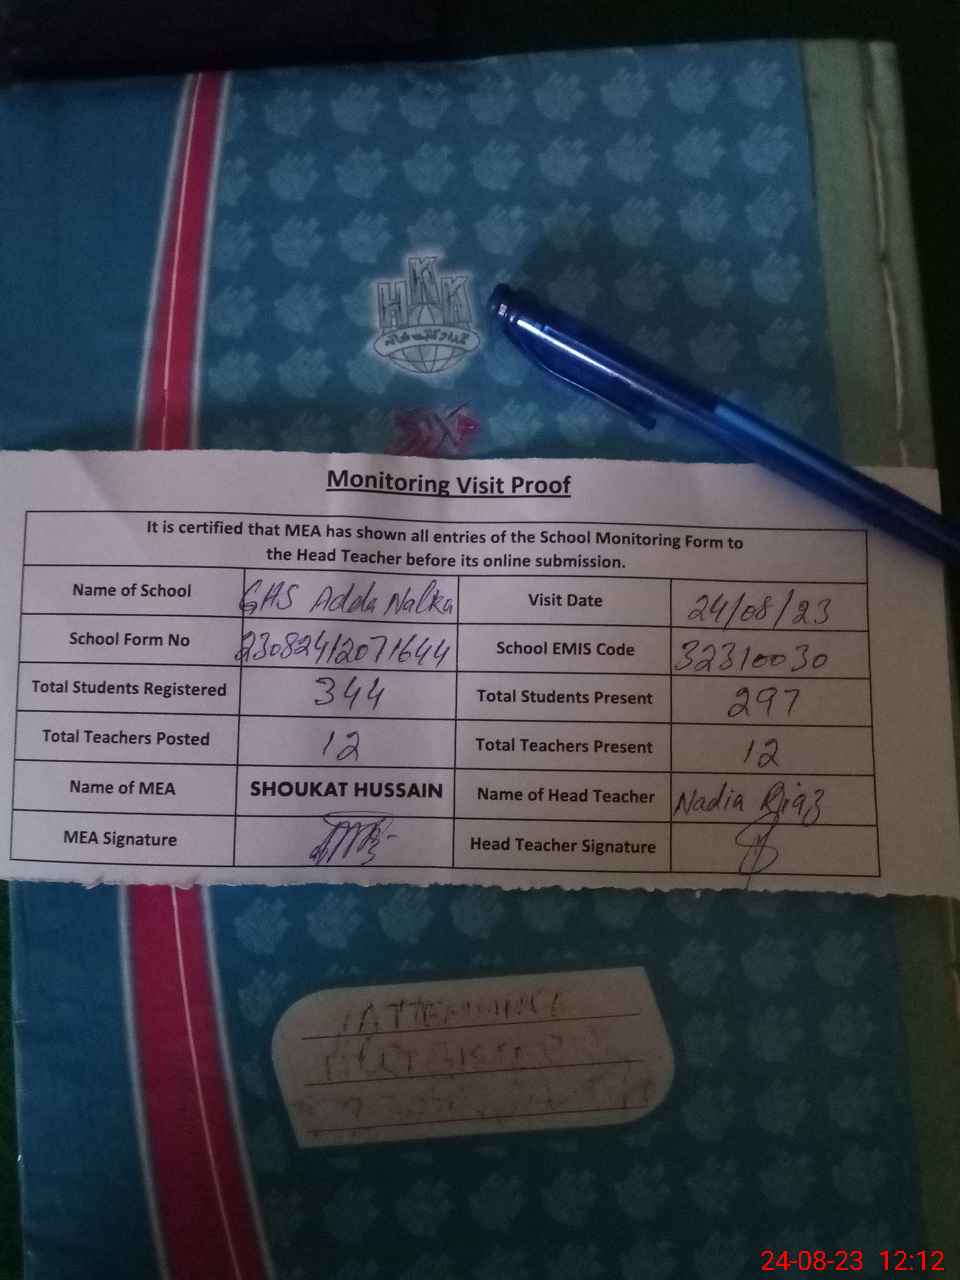 HKK
Monitoring Visit Proof
It is certified that MEA has shown all entries of the School Monitoring Form to
the Head Teacher before its online submission.
Name of School GHS Adda Nalka Visit Date 24/08/23
School Form No 23082412071644 School EMIS Code 32310030
Total Students Registered 344 Total Students Present 297
Total Teachers Posted 12 Total Teachers Present 12
Name of MEA SHOUKAT HUSSAIN Name of Head Teacher Nadia Riaz
MEA Signature Head Teacher Signature
24-08-23 12:12